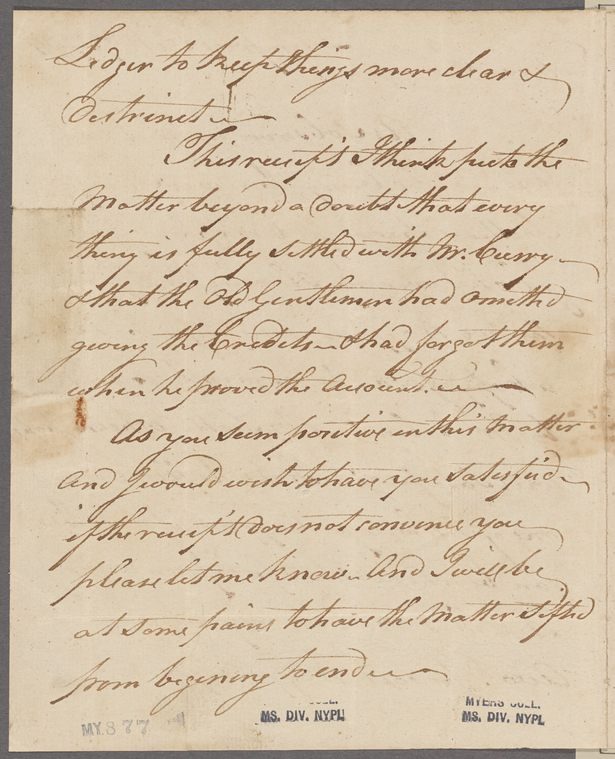 Ledger to keep things more clear &
destrinct
This receip't I think puts the
Matter beyond a doubt that every
thing is fully settled with Mr. Curry
& that the Old Gentleman had ometed
geving the Credets & had forgot them
when he proved the Account.
As you seem positive in this Matter
And I would wish to have you satesfied
if the receip't does not convence you
please let me know And I will be
at some pains to have the Matter sifted
from begening to end
MY 877
MS. DIV. NYPL
MYERS COLL.
MS. DIV. NYPL